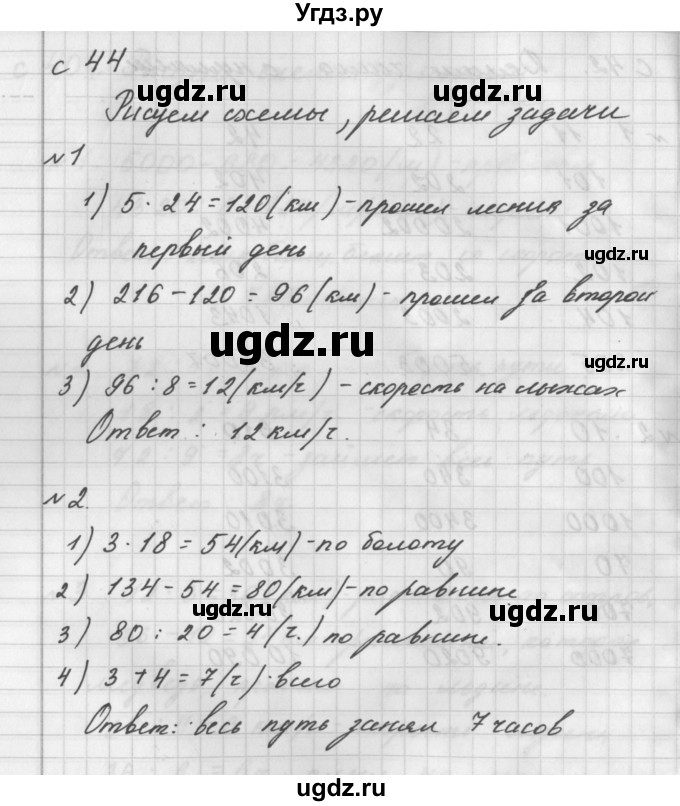 Угдз.ру
с 44
ugdz.ru ugdz.ru
Рисуем схемы, решаем задачи
№1
ugdz.ru
1) 5 · 24 = 120 (км) - прошел лесник за
первый день
ugdz.ru
2) 216 - 120 = 96 (км) - прошел за второй
день
ugdz.ru
3) 96 : 8 = 12 (км/ч) - скорость на лыжах
Ответ: 12 км/ч.
ugdz.ru
№2.
1) 3 · 18 = 54 (км) - по болоту
2) 134 - 54 = 80 (км) - по равнине
ugdz.ru ugdz.ru
3) 80 : 20 = 4 (ч.) по равнине.
4) 3 + 4 = 7 (ч) всего
Ответ: весь путь занял 7 часов
ugdz.ru
ugdz.ru